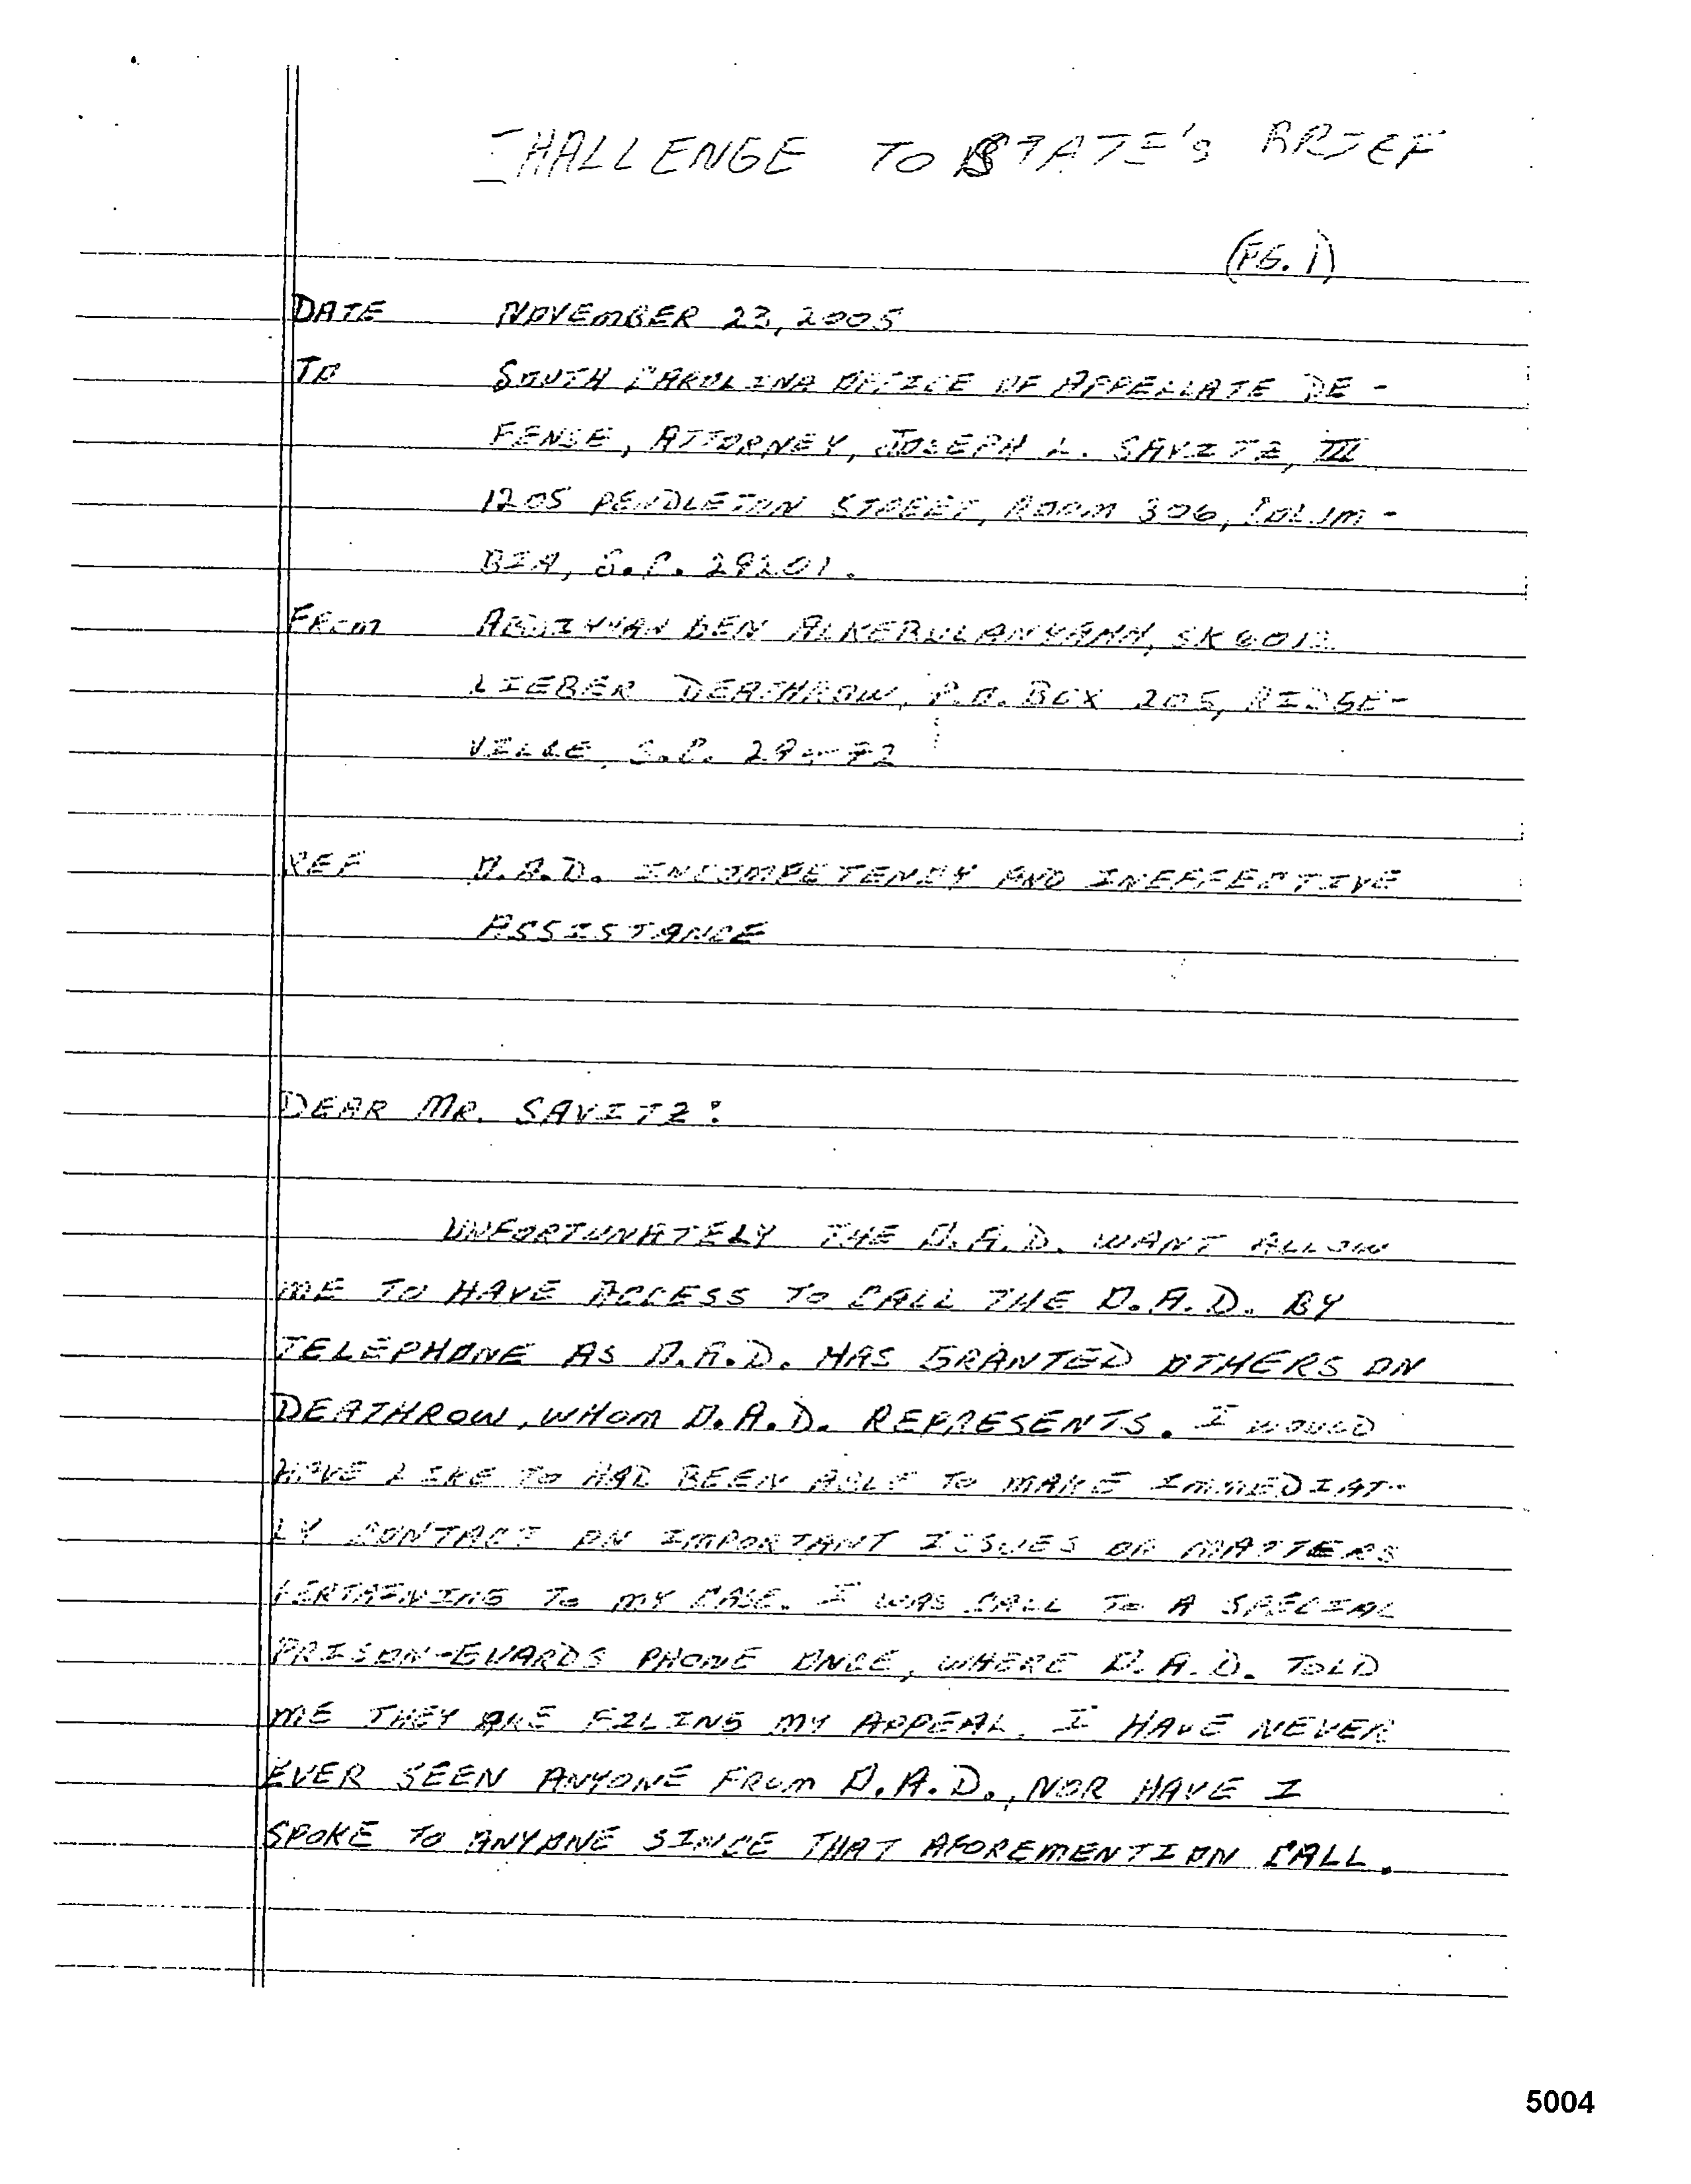 CHALLENGE TO STATE's BRIEF
(PG. 1)
DATE NOVEMBER 23, 2005
TO SOUTH CAROLINA OFFICE OF APPELLATE DE-
FENSE, ATTORNEY, JOSEPH L. SAVITZ, III
1205 PENDLETON STREET, ROOM 306, COLUM-
BIA, S.C. 29201.
FROM ABDIYYAH BEN ALKEBULANYAHH, SK6012
LIEBER DEATHROW, P.O. BOX 205, RIDGE-
VILLE, S.C. 29472
REF O.A.D. INCOMPETENCY AND INEFFECTIVE
ASSISTANCE
DEAR MR. SAVITZ:
UNFORTUNATELY THE O.A.D. WANT ALLOW
ME TO HAVE ACCESS TO CALL THE O.A.D. BY
TELEPHONE AS O.A.D. HAS GRANTED OTHERS ON
DEATHROW, WHOM O.A.D. REPRESENTS. I WOULD
HAVE LIKE TO HAD BEEN ABLE TO MAKE IMMEDIAT-
LY CONTACT ON IMPORTANT ISSUES OR MATTERS
PERTAINING TO MY CASE. I WAS CALL TO A SPECIAL
PRISON-GUARDS PHONE ONCE, WHERE O.A.D. TOLD
ME THEY ARE FILING MY APPEAL. I HAVE NEVER
EVER SEEN ANYONE FROM O.A.D., NOR HAVE I
SPOKE TO ANYONE SINCE THAT AFOREMENTION CALL.
5004